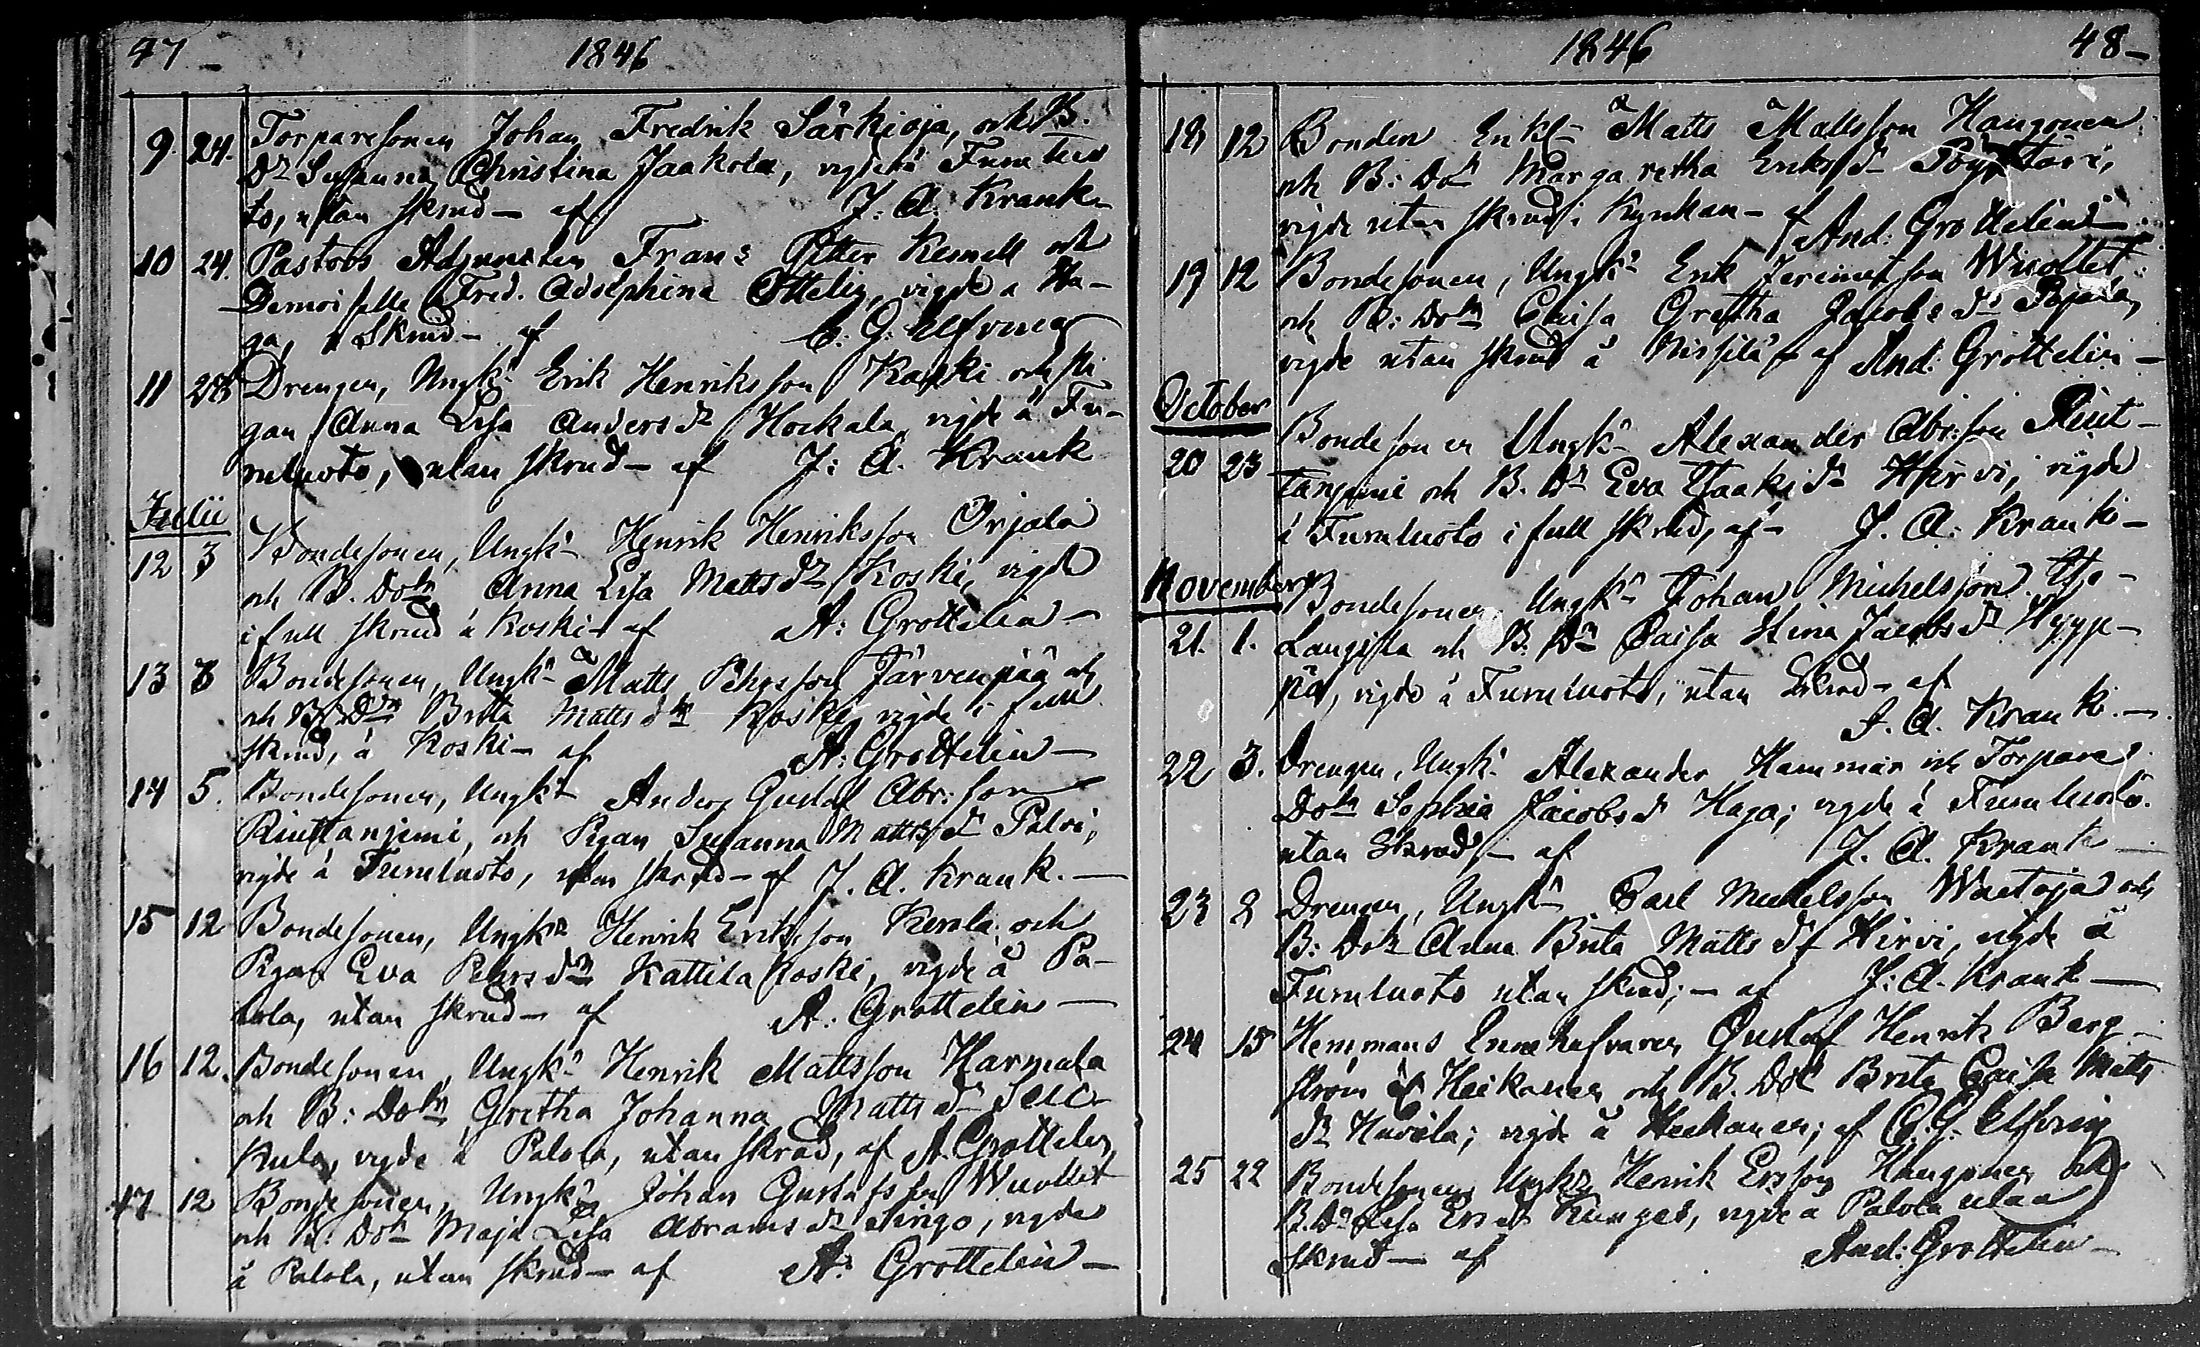 47 1846
9. 24. Torparesonen Johan Fredrik Särkioja, och B.
Dr Susanna Christina Jaakola, vigde å Furuluo
to, utan skrud – af J: A. Krank
10 24. Pastors Adjuncten Frans Petter Kesnell och
Demoiselle Fred. Adolphina Ottelin, vigde a Ha-
ga, i Skrud – af C. G. Elfving
11 28 Drengen, Ungk. Erik Henriksson Koski och Pi
gan Anna Lisa Anders dr Hockala vigde å Fu-
ruluoto, utan skrud – af J: A. Krank
Julii
12 3 Bondesonen, Ungk. Henrik Henriksson Orjala
och B. Dotr Anna Lisa Matts dr Koski, vigde
i full skrud å Koski – af A: Grottelin –
13 3 Bondesonen, Ungk. Matts Pehrsson Järvenpää och
och B: Dr Brita Matts dr Koski, vigde i full
skrud, å Koski – af A: Grottelin –
14 5. Bondesonen, Ungk. Anders Gustaf Abr: son
Riuttanjemi, och Pigan Susanna Matts dr Palvi,
vigde å Furuluoto, utan skrud – af J. A. Krank. –
15 12 Bondesonen, Ungk. Henrik Eriksson Kerola och
Pigan Eva Pehrs dr Kattilakoski, vigde å Pa-
lola, utan skrud – af A: Grottelin –
16 12. Bondesonen, Ungk. Henrik Mattsson Harmala
och B: Dotr Gretha Johanna Matts dr
kula, vigde å Palola, utan skrud, af A. Grottelin
17 12 Bondesonen, Ungk. Johan Gustafsson Wuollet
och B: Dotr Maja Lisa Abrams dr Siirigo, vigde
å Palola, utan skrud – af A: Grottelin –
1846 48 –
18 12 Bonden Enkl. Matts Mattsson Haugonen
och B: Dotr Margaretha Eriks dr Pöyttäri,
vigde utan skrud i Kynkan – af And: Grottelin –
19 12 Bondesonen, Ungk. Erik Jeremiasson Wuollet
och B: Dotr Caisa Gretha Jacobs dr Pajala,
vigde utan skrud å Nissilä – af And: Grottelin –
October
20 23 Bondesonen Ungk. Alexander Abr:son Riut-
tanjemi och B. Dr Eva Isaks dr Hirvi, vigde
å Furuluoto i full skrud, af – J. A: Krank –
November
21. 1. Bondesonen Ungk. Johan Michelsson
Laugista och B. Dr Caisa Stina Jacobs dr Hypp-
pä, vigde å Furuluoto, utan Skrud – af
J. A. Krank. –
22 3. Drengen, Ungk. Alexander Hammar och Torpare
Dotr Sophia Jacobs dr Haga; vigde å Furuluoto.
utan Skrud – af J. A. Krank –
23 8 Drengen, Ungk. Carl Michelsson Waetoja och
B: Dotr Anna Brita Matts dr Hirvi, vigde å
Furuluoto utan skrud; – af J: A. Krank –
24 15 Hemmans Innehafvaren Gustaf Henrik Berg-
ström å Heikanen och B. Dotr Brita Caisa Matts
dr Huvila; vigde å Heikanen; af C. G. Elfving
25 22 Bondesonen Ungk. Henrik Ersson Haugonen och
B. Dr Lisa Ers dr Kunges, vigde å Palola utan
skrud – af And: Grottelin –